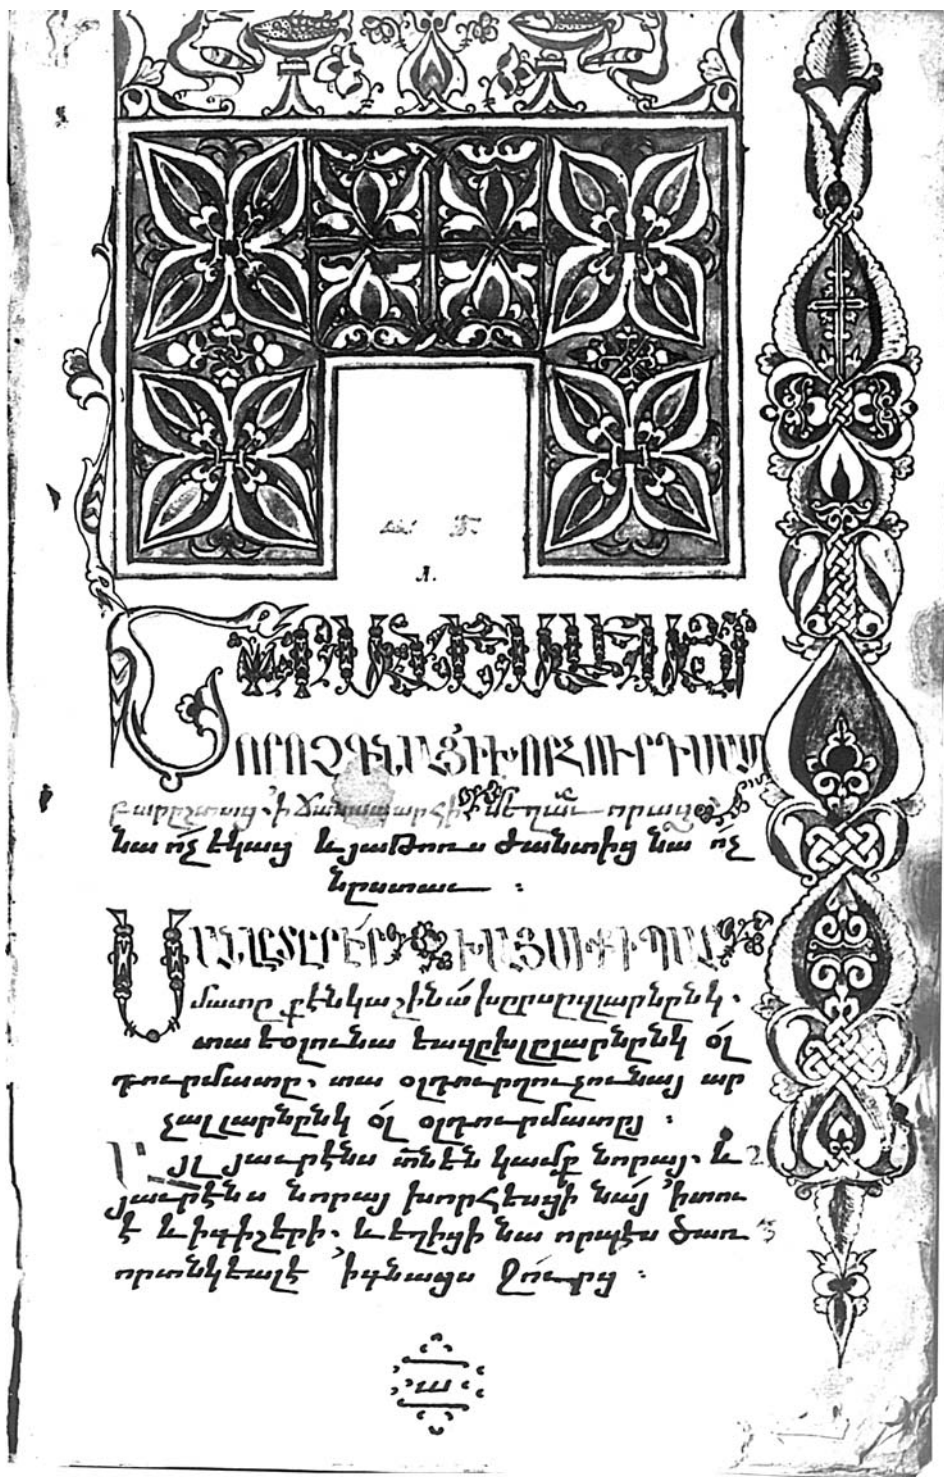 Ա.
ԵՐԱՆԵԱԼԷԱՅՐ
ՈՐՈՉԳՆԱՑ՚ԻԽՈՐՀՈՒՐԴՍԱՄ
բարըշտաց ՚ի ճանապարհի մեղաւորաց
նա ոչ եկաց և յաթոռս ժանտից նա ոչ
նըստաւ :
մատը քէնկաշինա
տա եօլունա եազըխլըլարնընկ օլ
տուրմատը, տա օլտուրղուչունայ ար
չալլարնընկ օլ օլտուրմատը :
Այլ յաւրէնս տն են կամք նորայ. և 2
յաւրէնս նորայ խորհեսցի նայ ՚ի տու
է և ի գիշերի. և եղիցի նա որպէս ծառ 3
որ տնկեալ է ՚ի գնացս ջուրց :
ա